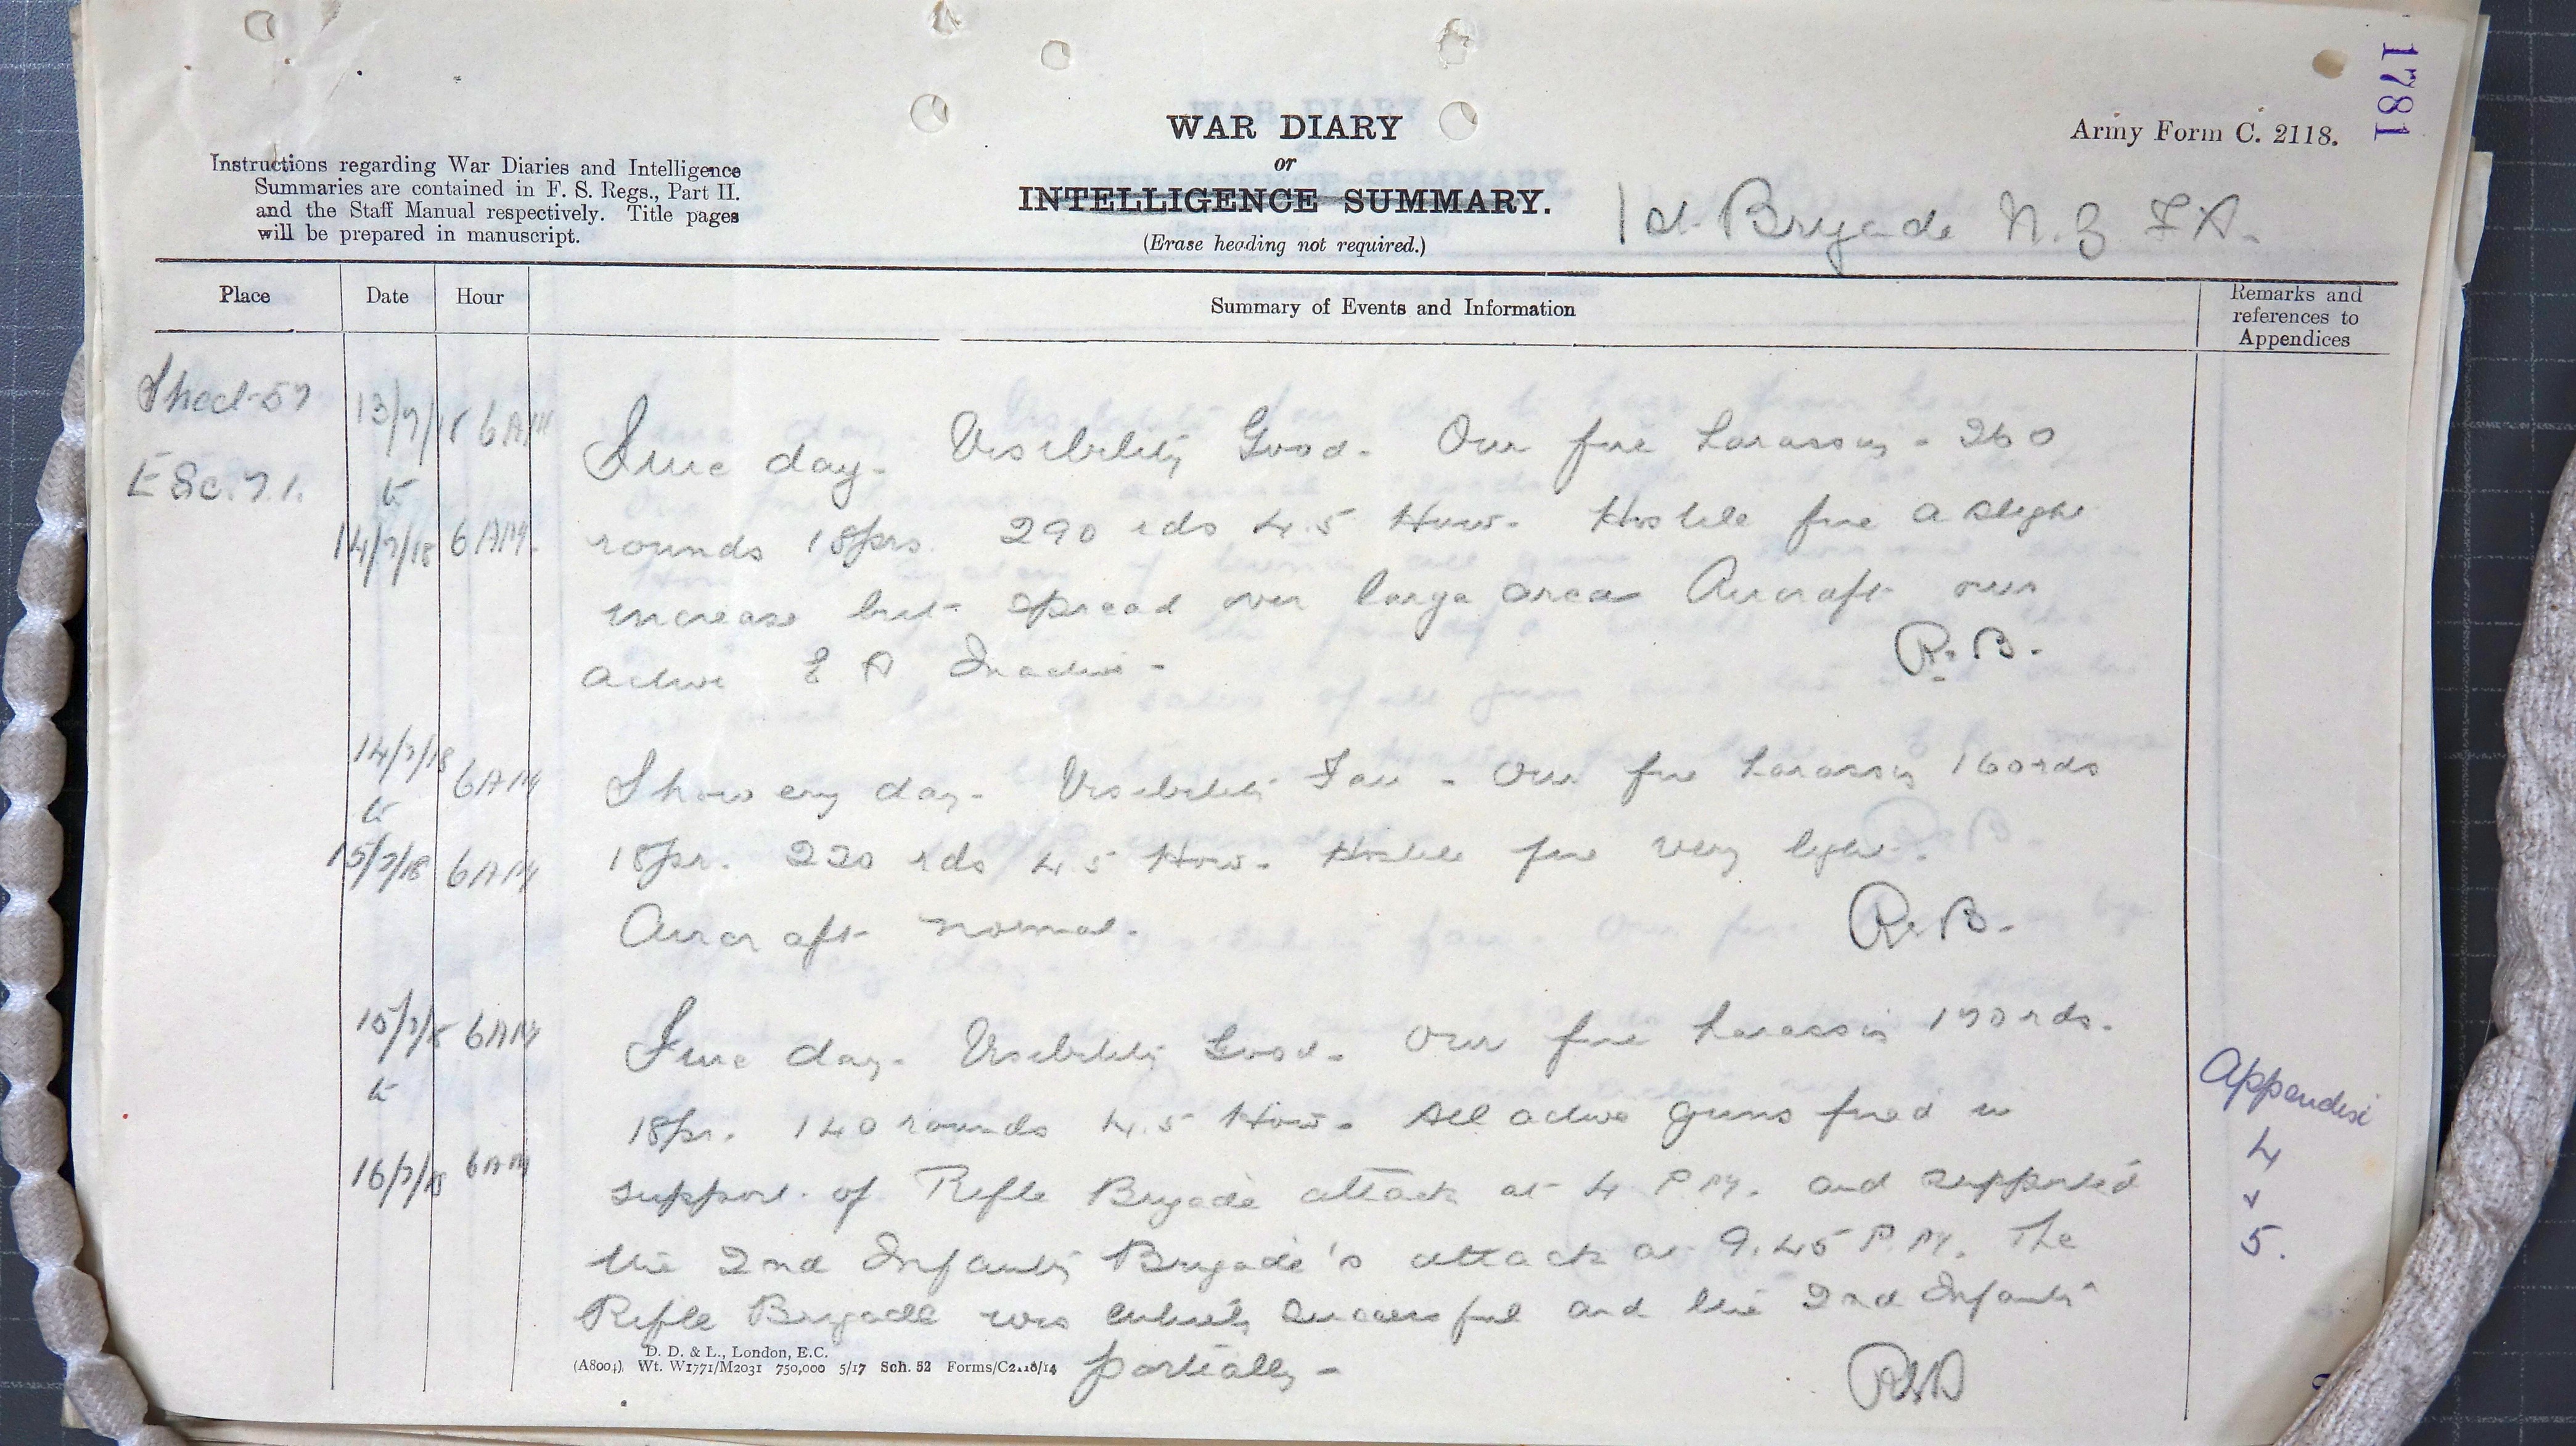 1781
WAR DIARY
or
INTELLIGENCE SUMMARY.
(Erase heading not required.)
Army Form C. 2118.
Instructions regarding War Diaries and Intelligence
Summaries are contained in F. S. Regs., Part II.
and the Staff Manual respectively. Title pages
will be prepared in manuscript.
1st Brigade N.Z F.A.
Place
Date
Hour
Summary of Events and Information
Remarks and
references to
Appendices
Sheet 57
13/7/18 6 AM
Fine day. Visibility Good. Our fire harassing - 260
to
14/7/18 6 AM.
rounds 18prs. 290 rds 4.5 How. Hostile fire a slight
increase but spread over large area Aircraft ours
active E A Inactive -
R.B.
14/7/18 6 AM
to
15/7/18 6 AM
Showery day. Visibility Fair - Our fire harassing 160 rds
18pr. 220 rds 4.5 How. Hostile fire very light.
Aircraft normal.
R.B.
15/7/18 6 AM
to
16/7/18 6 AM
Fine day. Visibility Good. Our fire harassing 170 rds.
18pr. 140 rounds 4.5 How. All active guns fired in
support of Rifle Brigade attack at 4 PM. and supported
the 2nd Infantry Brigade's attack at 9.45 P.M. The
Rifle Brigade was entirely successful and the 2nd Infantry
partially -
Appendix
4
&
5.
D. D. & L., London, E.C.
(A8004). Wt. W1771/M2031 750,000 5/17 Sch. 52 Forms/C2118/14